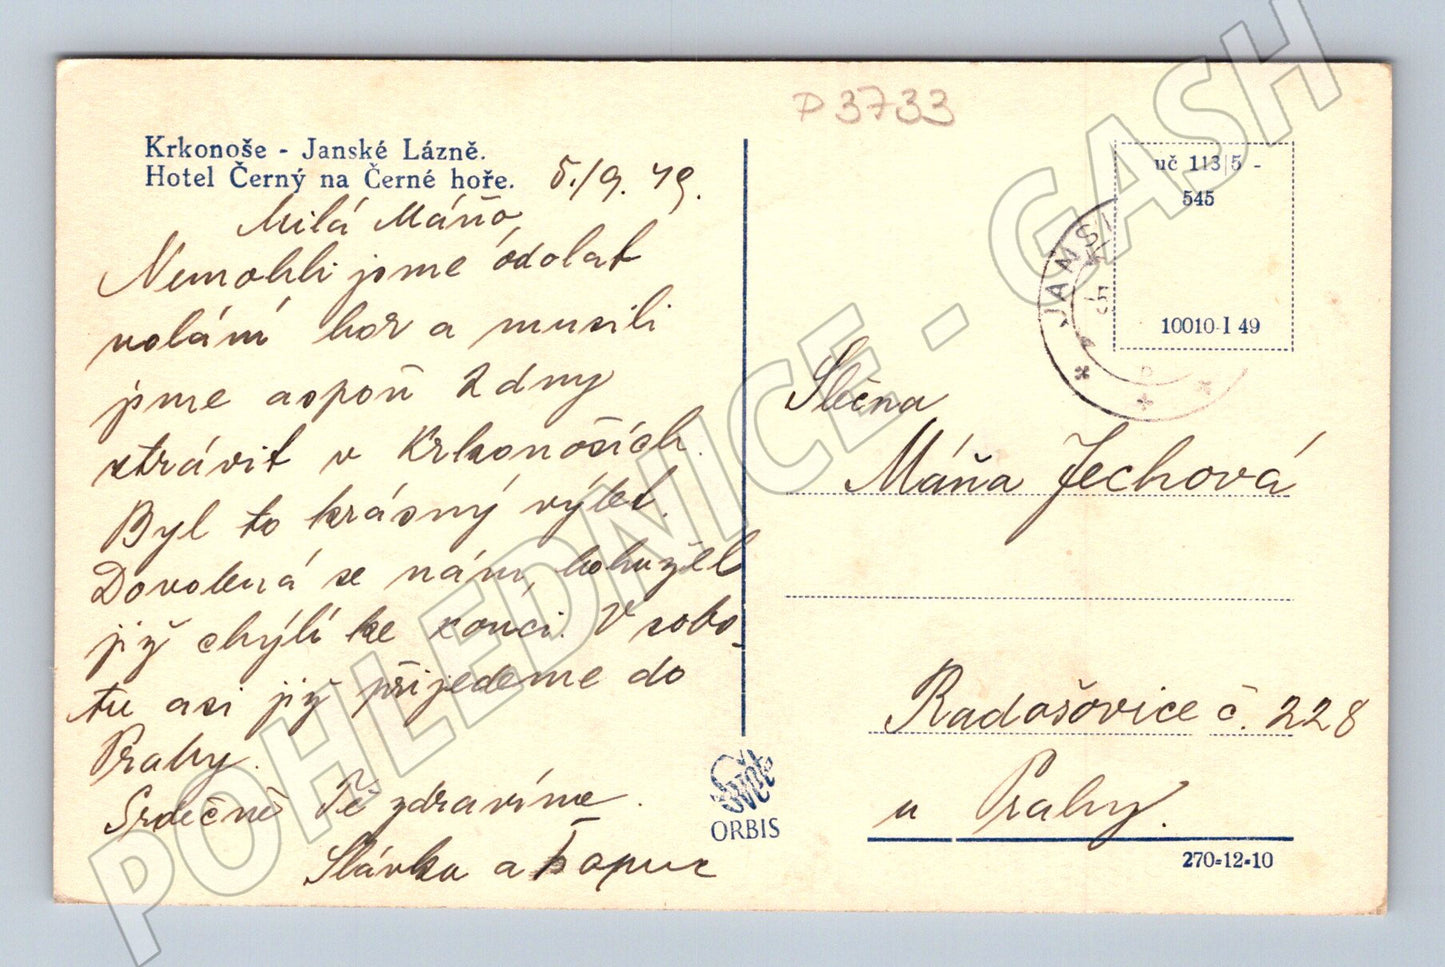 P 3733
Krkonoše - Janské Lázně.
Hotel Černý na Černé hoře.
5./9. 49.
Milá Máňo,
Nemohli jsme odolat
volání hor a musili
jsme aspoň 2 dny
strávit v Krkonoších.
Byl to krásný výlet.
Dovolená se nám, bohužel
již chýlí ke konci. V sobo-
tu asi již přijedeme do
Prahy.
Srdečně Tě zdravíme.
Slávka a
uč 113/5 -
545
10010-I 49
JAMSK
Slečna
Máňa Jechová
Radošovice č. 228
u Prahy.
Svět
ORBIS
270-12-10
POHLEDNICE - GASH